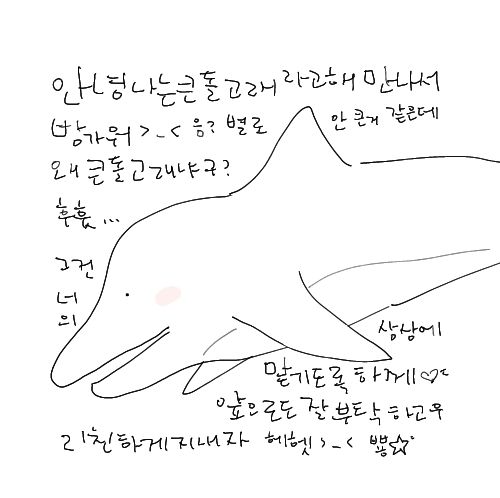 안녕 나는 큰 돌고래 라고해 만나서
방가워 >_< 음? 별로 안 큰거 같은데
왜 큰돌고래냐구?
후훗...
그건
너
의
상상에
맡기도록 하께♡~
앞으로도 잘 부탁하고우
리친하게지내자 헤헷 >_< 뿅☆